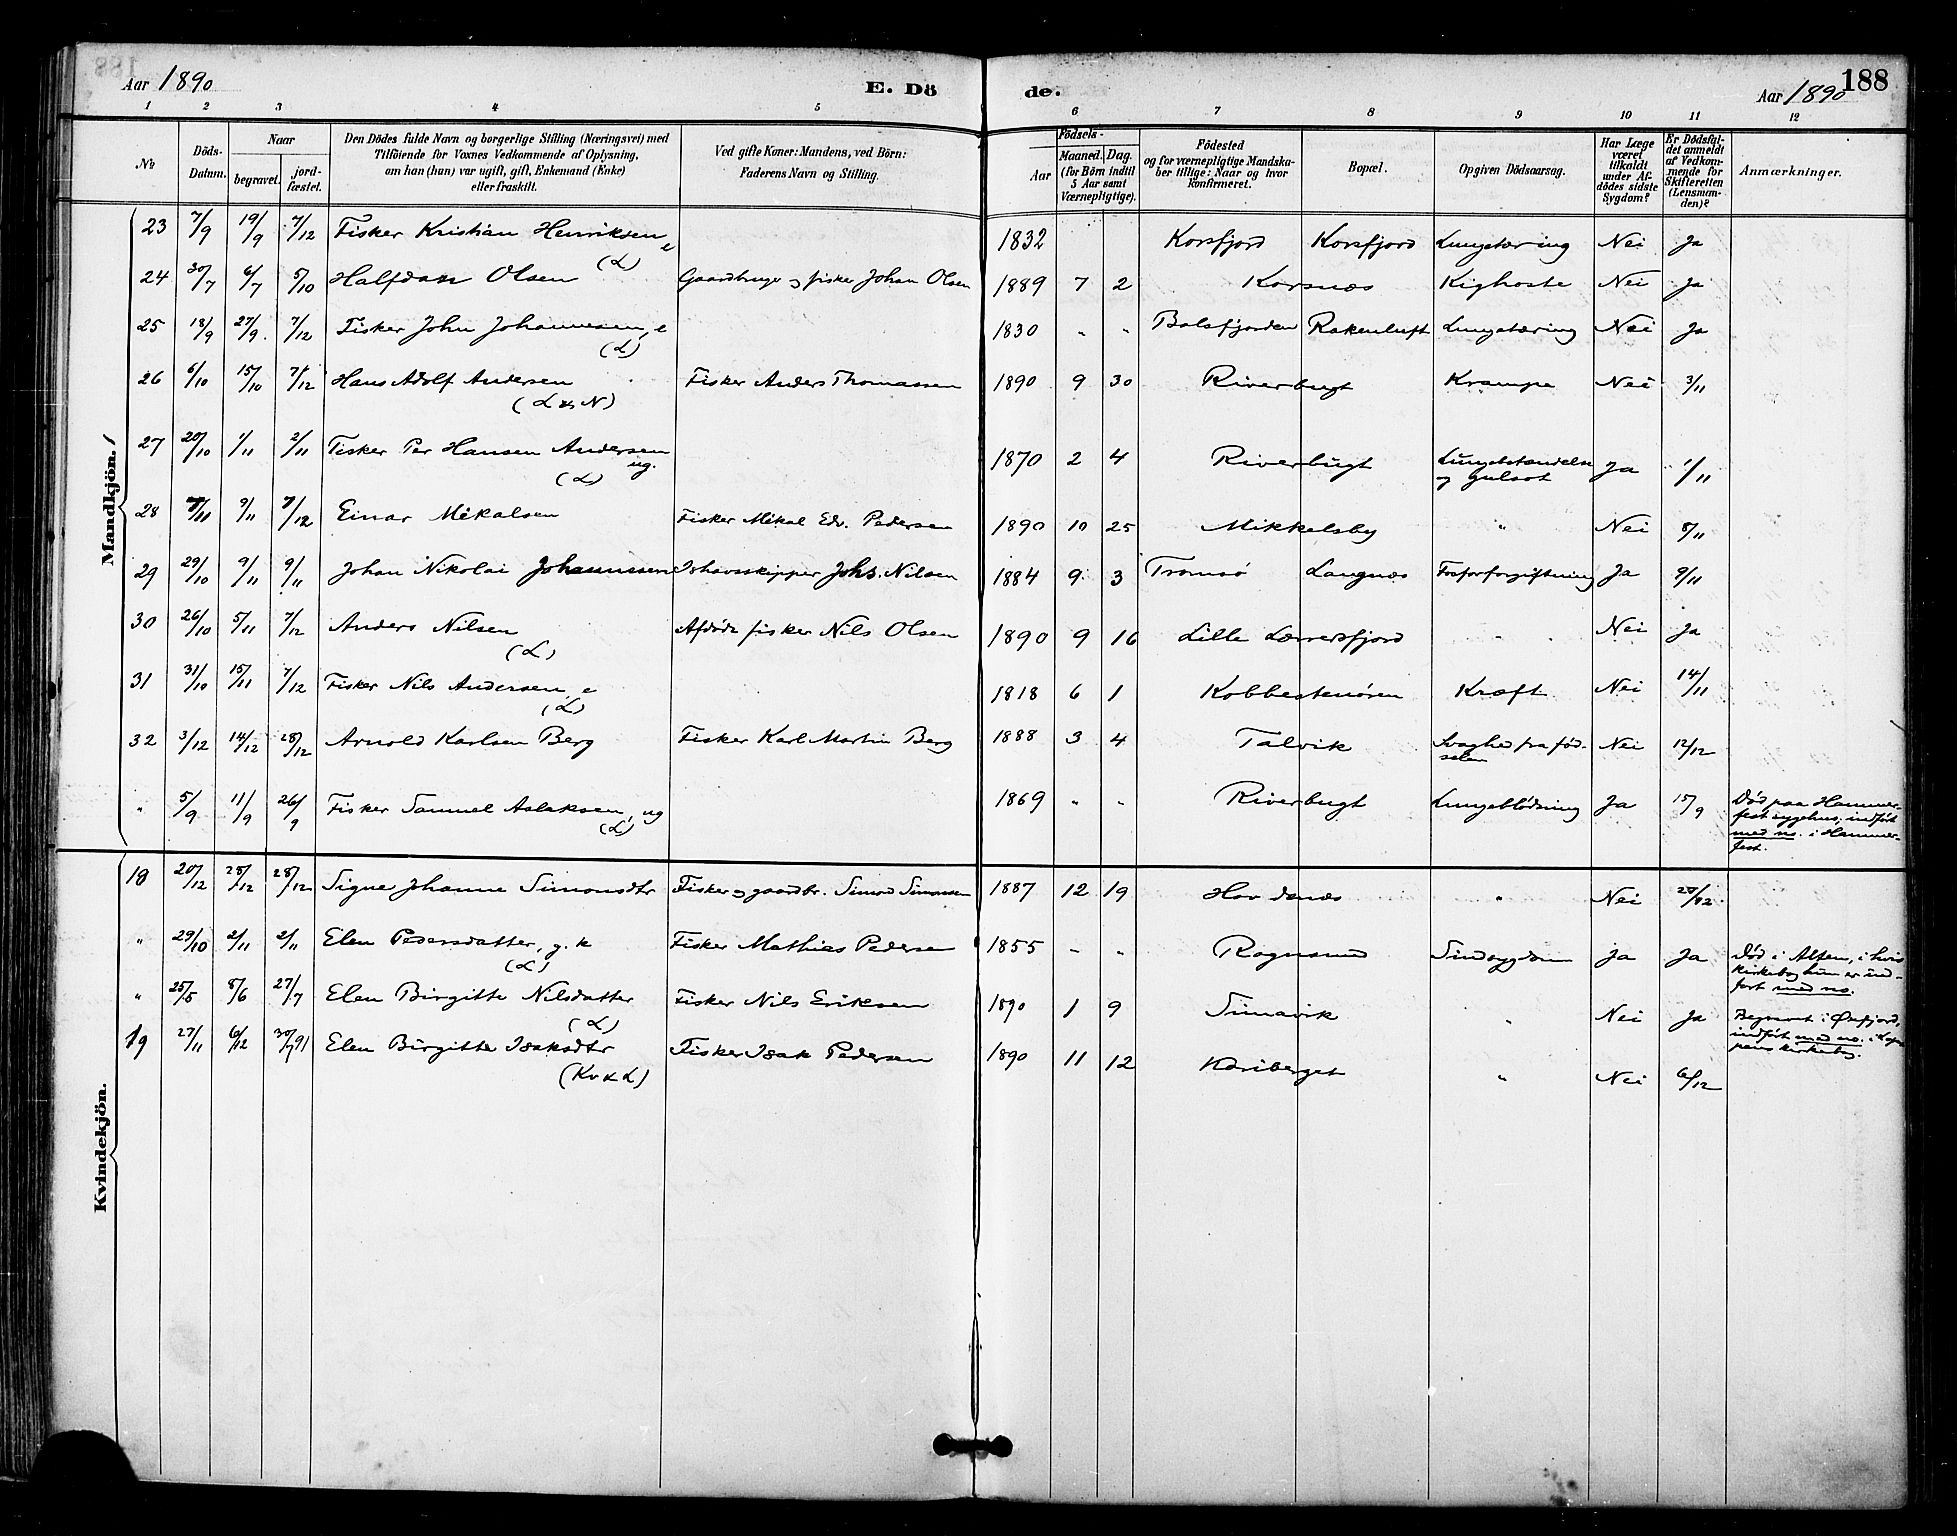 Aar 1890
E. Dö
de.
Aar 1890
188
1 2 3 4 5 6 7 8 9 10 11 12
No
Döds-
Datum.
Naar
begravet.
jord-
fæstet.
Den Dödes fulde Navn og borgerlige Stilling (Næringsvei) med
Tilföiende for Voxnes Vedkommende af Oplysning,
om han (hun) var ugift, gift, Enkemand (Enke)
eller fraskilt.
Ved gifte Koner: Mandens, ved Börn:
Faderens Navn og Stilling.
Födsels-
Aar
Maaned. Dag.
(for Börn indtil
5 Aar samt
Værnepligtige).
Födested
og for værnepligtige Mandska-
ber tillige: Naar og hvor
konfirmeret.
Bopæl.
Opgiven Dödsaarsag.
Har Læge
været
tilkaldt
under Af-
dödes sidste
Sygdom?
Er Dödsfal-
det anmeldt
af Vedkom-
mende for
Skifteretten
(Lensman-
den)?
Anmærkninger.
Mandkjön.
23 7/9 19/9 7/12 Fisker Kristian Henriksen, e (L) 1832 Korsfjord Korsfjord Lungetæring Nei Ja
24 30/7 6/7 5/10 Halfdan Olsen Gaardbruger og fisker Johan Olsen 1889 7 2 Korsnæs Kighoste Nei Ja
25 18/9 27/9 7/12 Fisker John Johannesen, e (L) 1830 " " Balsfjorden Rakenluft Lungetæring Nei Ja
26 6/10 15/10 7/12 Hans Adolf Andersen (L & N) Fisker Anders Thomassen 1890 9 30 Riverbugt Krampe Nei 3/11
27 20/10 1/11 2/11 Fisker Per Hansen Andersen ug. (L) 1870 2 4 Riverbugt Lungebetændelse og Gulsot Ja 1/11
28 7/11 9/11 7/12 Einar Mikalsen Fisker Mikal Edv. Pedersen 1890 10 25 Mikkelsby " Nei 8/11
29 29/10 9/11 9/11 Johan Nikolai Johannesen Ishavsskipper Johs. Nilsen 1884 9 3 Tromsö Langnæs Fosforforgiftning Ja 9/11
30 26/10 5/11 7/12 Anders Nilsen (L) Afdöde fisker Nils Olsen 1890 9 16 Lille Lerresfjord " Nei Ja
31 31/10 15/11 7/12 Fisker Nils Andersen, e (L) 1818 6 1 Kobbestenören Kræft Nei 14/11
32 3/12 14/12 28/12 Arnold Karlsen Berg Fisker Karl Martin Berg 1888 3 4 Talvik Svaghed fra föd-
selen Nei 12/12
" 5/9 11/9 26/9 Fisker Samuel Aslaksen, ug (L) 1869 " " Riverbugt Lungeblödning Ja 15/9 Död paa Hammer-
fest sygehus, indfört
med no. i Hammer-
fest.
Kvindekjön.
18 20/12 28/12 28/12 Signe Johanne Simonsdtr Fisker og gaardbr. Simon Simonsen 1887 12 19 Havdnæs " Nei 28/12
" 29/10 2/11 2/11 Elen Pedersdatter, g. k (L) Fisker Mathias Pedersen 1855 - " Rognsund Sindssygdom Ja Ja Död i Alten, i hvis
kirkebog hun er ind-
fört med no.
" 25/5 8/6 27/7 Elen Birgitte Nilsdatter (L) Fisker Nils Eriksen 1890 1 9 Simavik " Nei Ja Begravet i Öxfjord,
indfört med no. i Lop-
pens kirkebog.
19 27/11 6/12 30/7 91 Elen Birgitte Isaksdtr (Kv & L) Fisker Isak Pedersen 1890 11 12 Kariberget " Nei 6/12